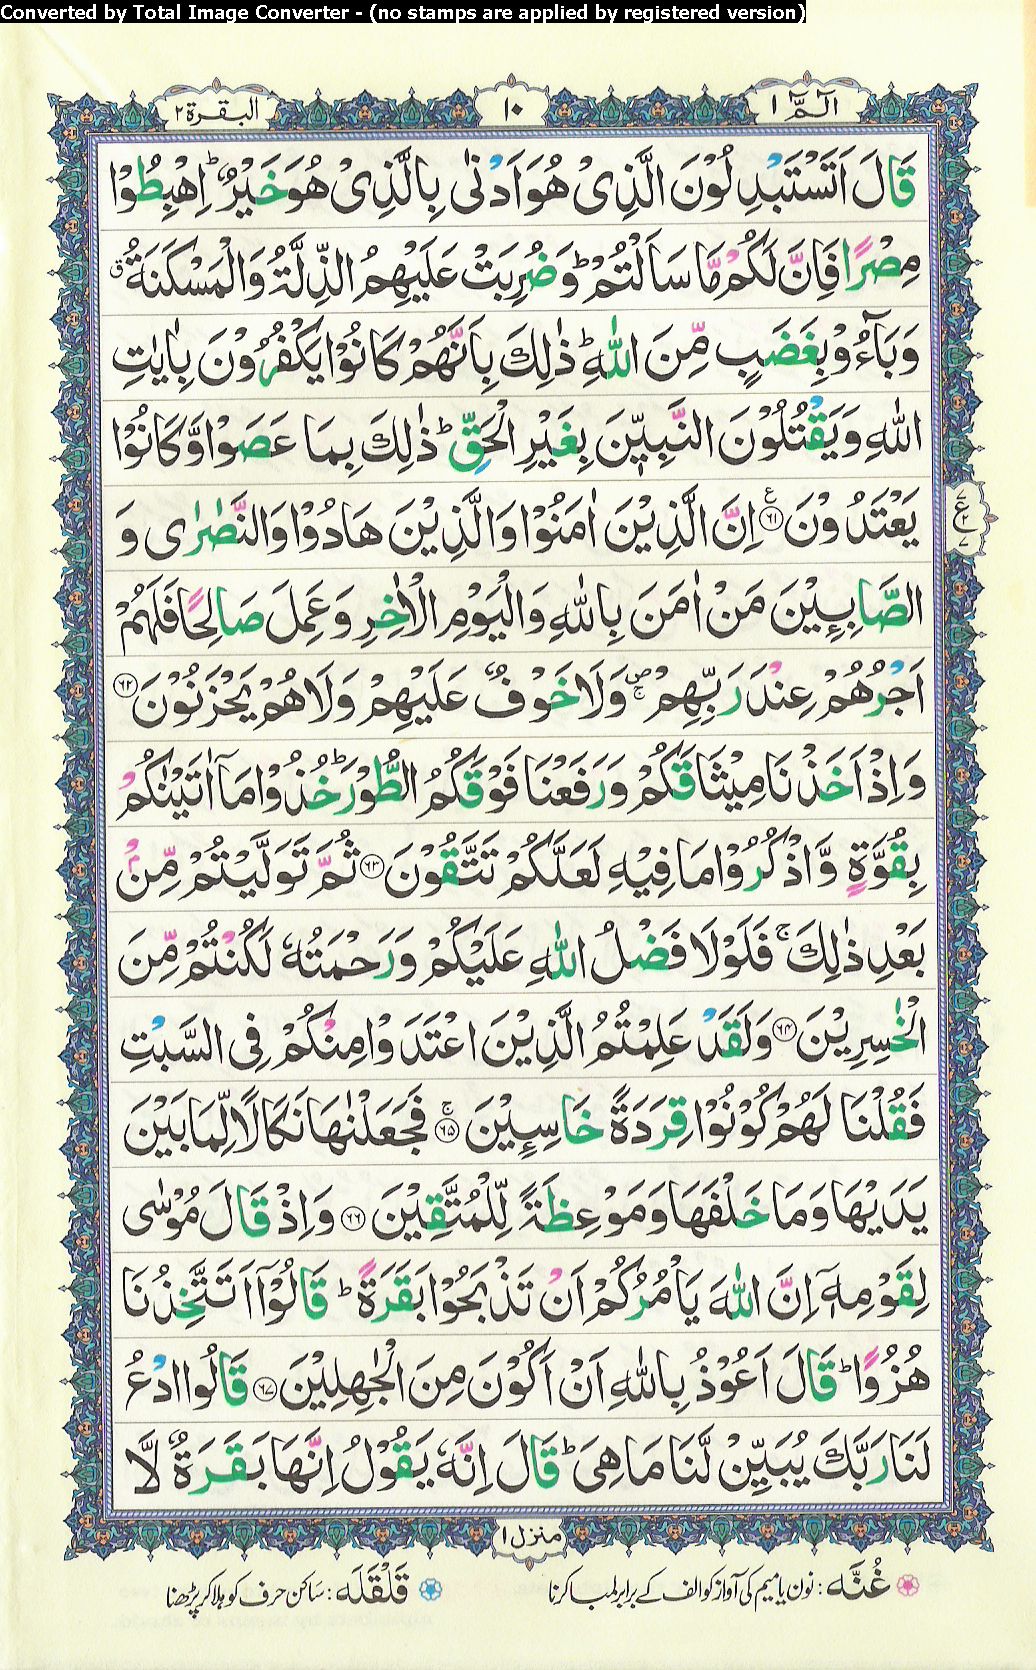 Converted by Total Image Converter - (no stamps are applied by registered version)
الٓمّٓ ۱
۱۰
البقرة ۲
قَالَ اَتَسْتَبْدِلُوْنَ الَّذِیْ هُوَ اَدْنٰی بِالَّذِیْ هُوَ خَیْرٌ ؕ اِهْبِطُوْا
مِصْرًا فَاِنَّ لَكُمْ مَّا سَاَلْتُمْ ؕ وَ ضُرِبَتْ عَلَیْهِمُ الذِّلَّةُ وَ الْمَسْكَنَةُ ۗ
وَ بَآءُوْ بِغَضَبٍ مِّنَ اللّٰهِ ؕ ذٰلِكَ بِاَنَّهُمْ كَانُوْا یَكْفُرُوْنَ بِاٰیٰتِ
اللّٰهِ وَ یَقْتُلُوْنَ النَّبِیّٖنَ بِغَیْرِ الْحَقِّ ؕ ذٰلِكَ بِمَا عَصَوْا وَّ كَانُوْا
یَعْتَدُوْنَ ۶۱ ع اِنَّ الَّذِیْنَ اٰمَنُوْا وَ الَّذِیْنَ هَادُوْا وَ النَّصٰرٰی وَ
ع
۷
۲
۷
الصَّابِـِٕیْنَ مَنْ اٰمَنَ بِاللّٰهِ وَ الْیَوْمِ الْاٰخِرِ وَ عَمِلَ صَالِحًا فَلَهُمْ
اَجْرُهُمْ عِنْدَ رَبِّهِمْ ۪ۚ وَ لَا خَوْفٌ عَلَیْهِمْ وَ لَا هُمْ یَحْزَنُوْنَ ۶۲
وَ اِذْ اَخَذْنَا مِیْثَاقَكُمْ وَ رَفَعْنَا فَوْقَكُمُ الطُّوْرَ ؕ خُذُوْا مَاۤ اٰتَیْنٰكُمْ
بِقُوَّةٍ وَّ اذْكُرُوْا مَا فِیْهِ لَعَلَّكُمْ تَتَّقُوْنَ ۶۳ ثُمَّ تَوَلَّیْتُمْ مِّنْۢ
بَعْدِ ذٰلِكَ ۚ فَلَوْ لَا فَضْلُ اللّٰهِ عَلَیْكُمْ وَ رَحْمَتُهٗ لَكُنْتُمْ مِّنَ
الْخٰسِرِیْنَ ۶۴ وَ لَقَدْ عَلِمْتُمُ الَّذِیْنَ اعْتَدَوْا مِنْكُمْ فِی السَّبْتِ
فَقُلْنَا لَهُمْ كُوْنُوْا قِرَدَةً خَاسِـِٕیْنَ ۶۵ ۚ فَجَعَلْنٰهَا نَكَالًا لِّمَا بَیْنَ
یَدَیْهَا وَ مَا خَلْفَهَا وَ مَوْعِظَةً لِّلْمُتَّقِیْنَ ۶۶ وَ اِذْ قَالَ مُوْسٰی
لِقَوْمِهٖۤ اِنَّ اللّٰهَ یَاْمُرُكُمْ اَنْ تَذْبَحُوْا بَقَرَةً ؕ قَالُوْۤا اَتَتَّخِذُنَا
هُزُوًا ؕ قَالَ اَعُوْذُ بِاللّٰهِ اَنْ اَكُوْنَ مِنَ الْجٰهِلِیْنَ ۶۷ قَالُوا ادْعُ
لَنَا رَبَّكَ یُبَیِّنْ لَّنَا مَا هِیَ ؕ قَالَ اِنَّهٗ یَقُوْلُ اِنَّهَا بَقَرَةٌ لَّا
منزل ۱
غُنَّه : نون یا میم کی آواز کو الف کے برابر لمبا کرنا
قَلْقَلَه : ساکن حرف کو ہلا کر پڑھنا